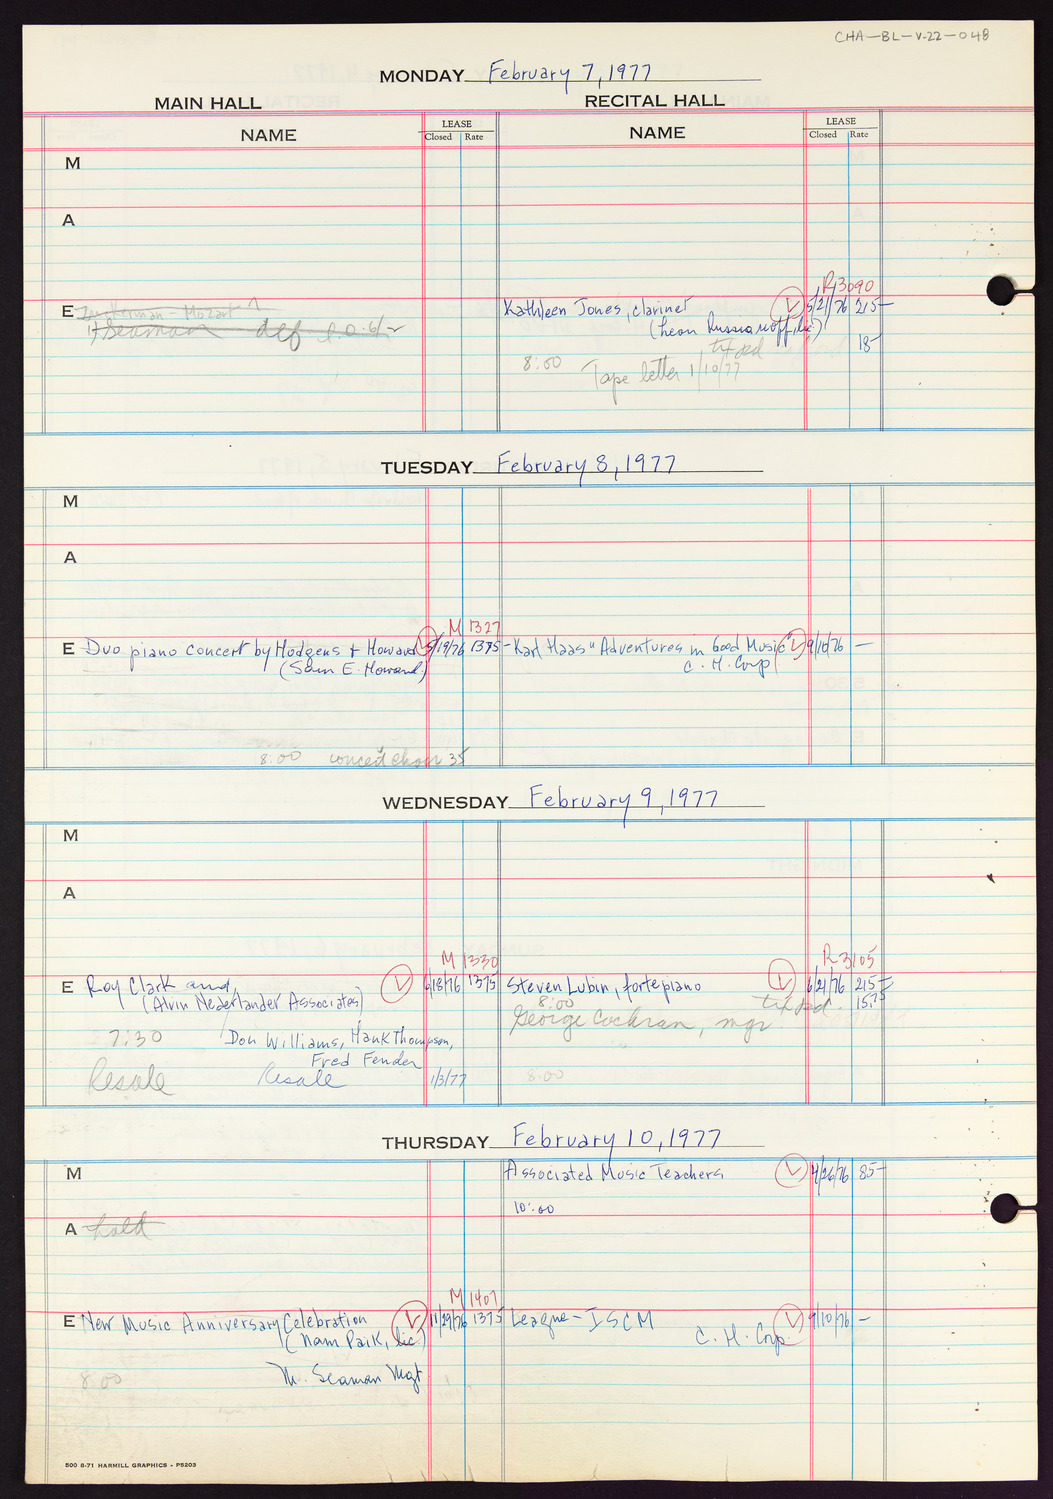 CHA-BL-V-22-048
MONDAY February 7, 1977
MAIN HALL
RECITAL HALL
NAME
LEASE
Closed Rate
NAME
LEASE
Closed Rate
M
A
R3090
E
Zukerman - Mozart
Seaman def
Kathleen Jones, clarinet 5/21/76 215-
(Leon Russianoff, lic)
18-
txt pd
8:00 Tape letter 1/10/77
TUESDAY February 8, 1977
M
A
M 1327
E Duo piano concert by Hodgens + Howard 5/19/76 1375-
Karl Haas "Adventures in Good Music" 9/10/76 -
(Sam E. Howard)
C. H. Corp
8:00 concert choir 35
WEDNESDAY February 9, 1977
M
A
M 1330
R 3105
E Roy Clark and 6/18/76 1375
Steven Lubin, fortepiano 6/21/76 215-
(Alvin Nederlander Associates)
8:00 txt pd. 15.75
George Cochran, mgr.
7:30 Don Williams, Hank Thompson,
Fred Fender
Resale Resale 1/3/77
8:00
THURSDAY February 10, 1977
M
Associated Music Teachers 4/26/76 85-
10:00
A hold
M 1407
E New Music Anniversary Celebration 11/29/76 1375
League - ISCM 9/10/76 -
(Nam Paik, lic)
C. H. Corp.
8:00 M. Seaman Mgt
500 8-71 HARMILL GRAPHICS - P5203